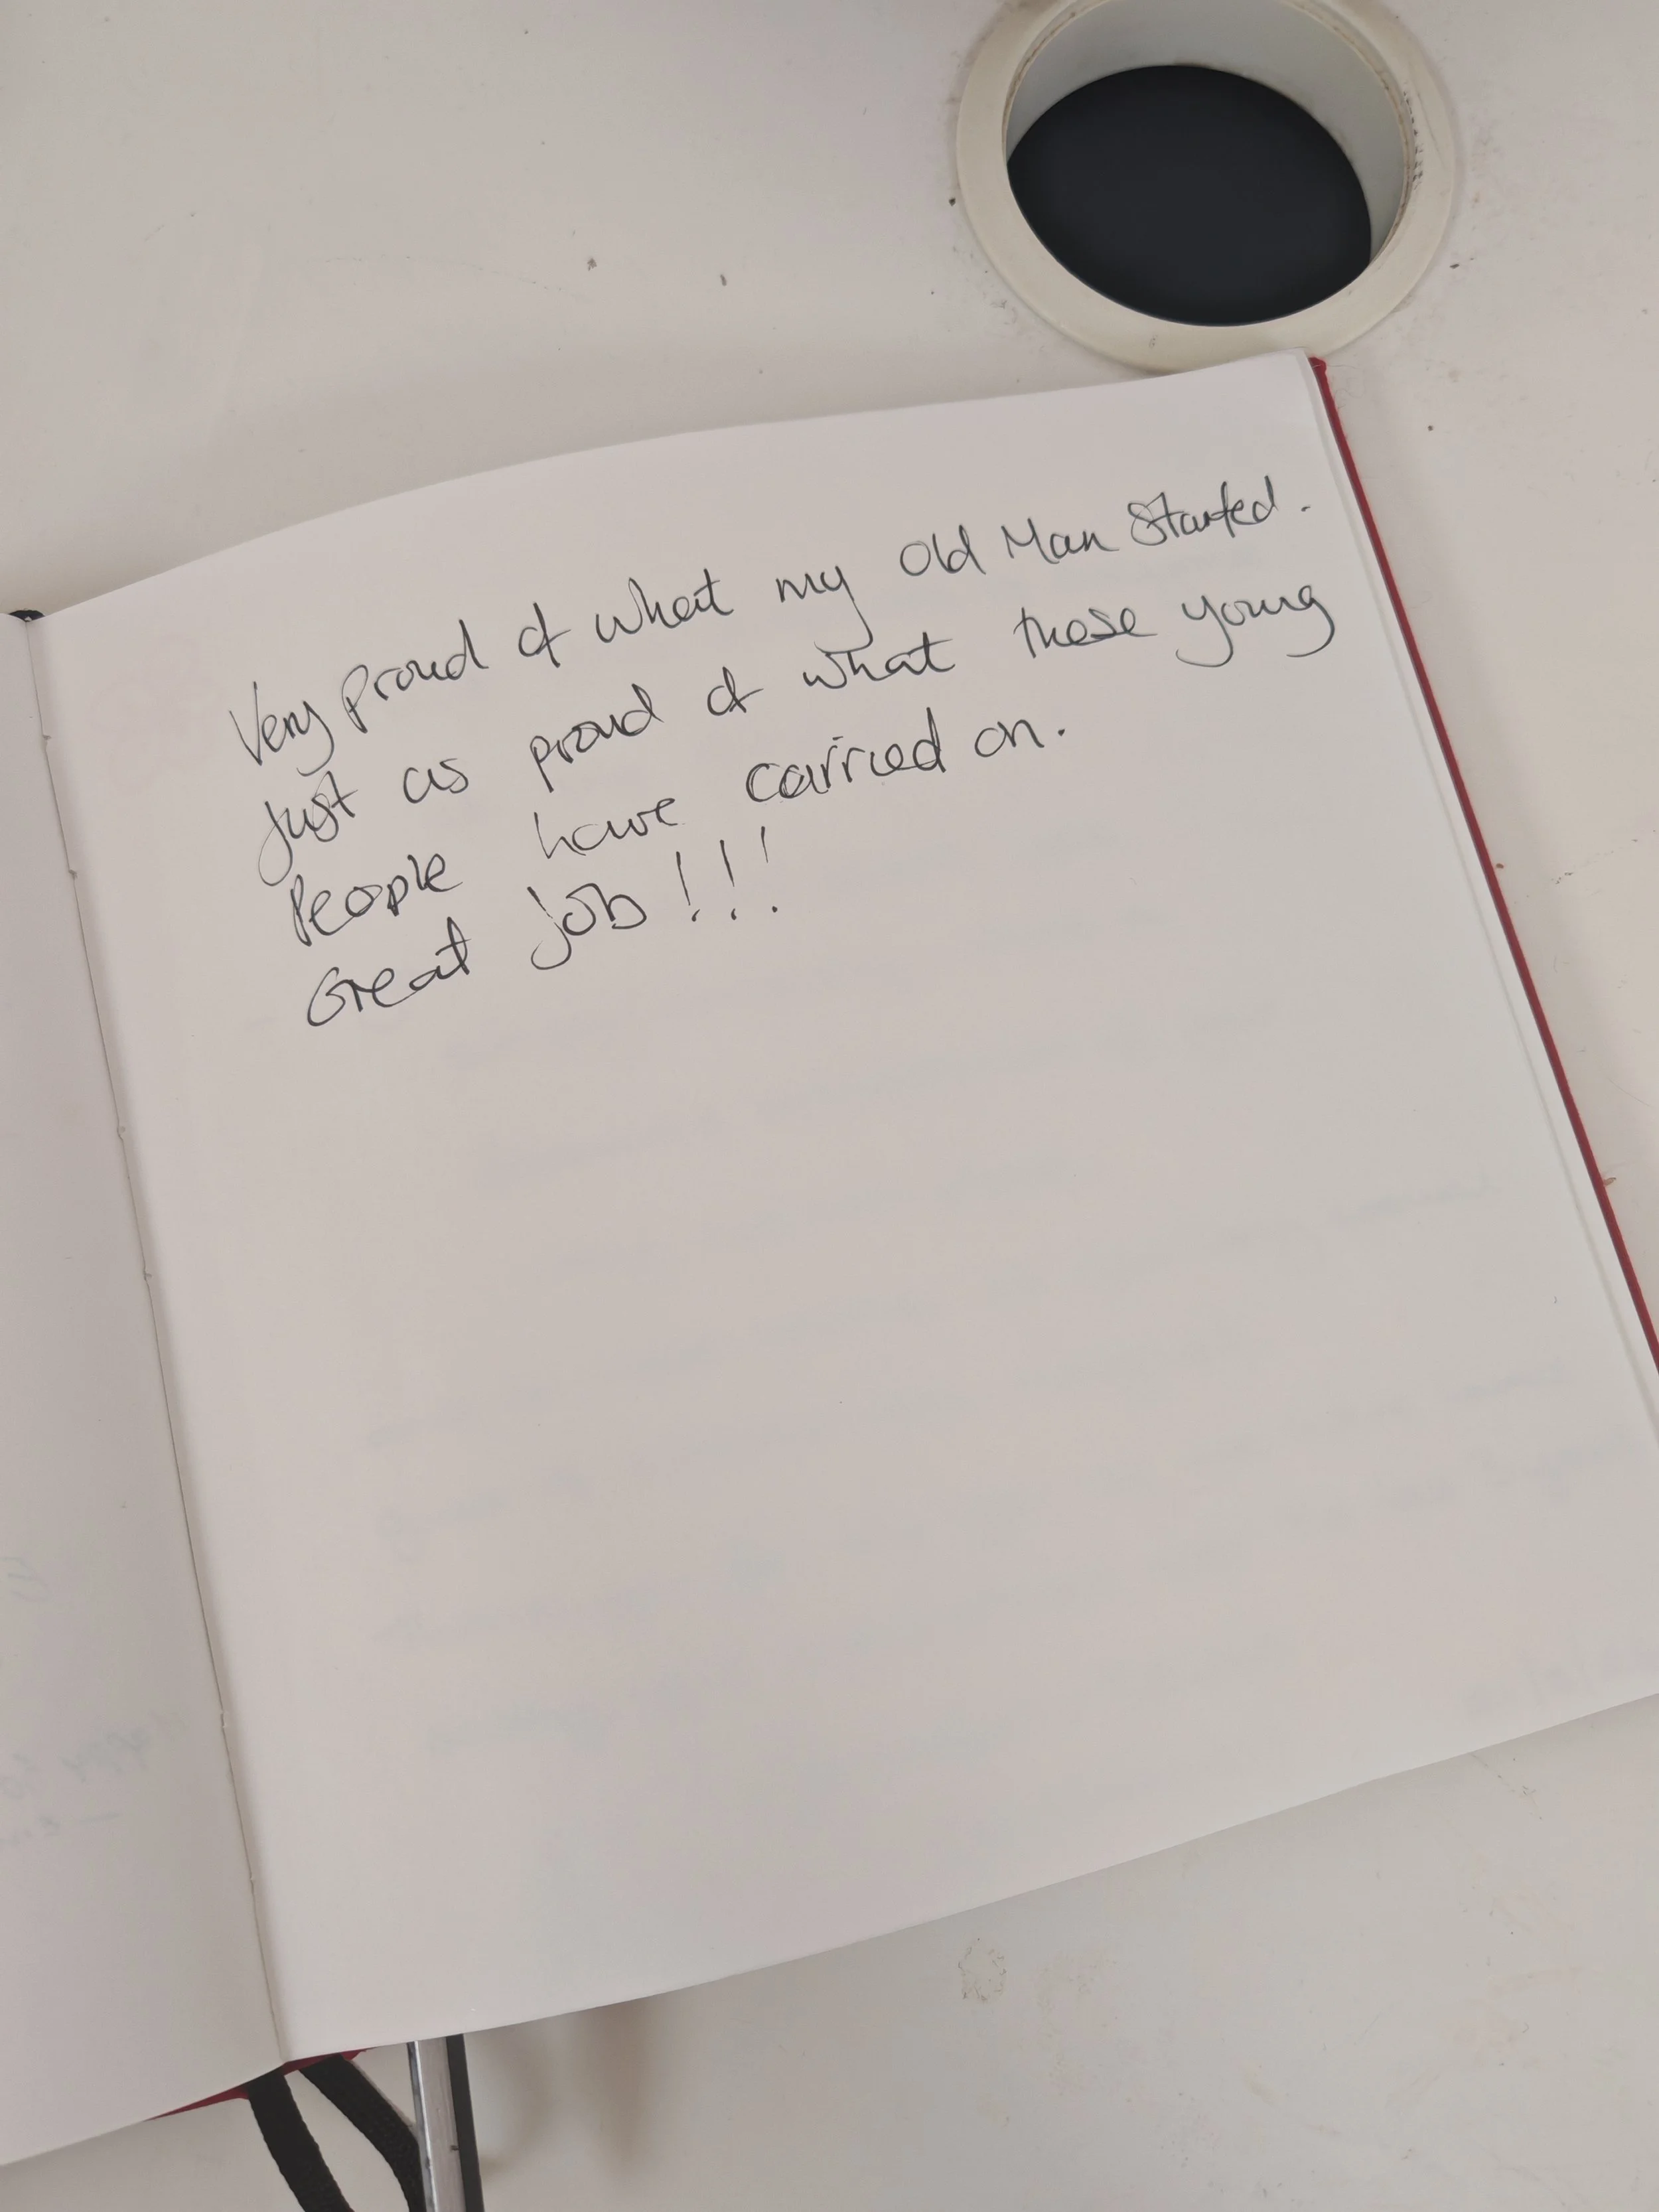 Very proud of what my Old Man Started.
Just as proud of what these young
People have carried on.
Great job!!!